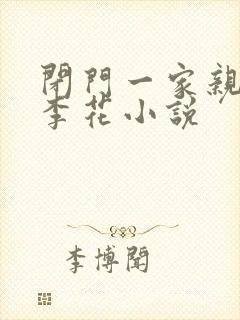 閉門一家親
李花小說
李博聞